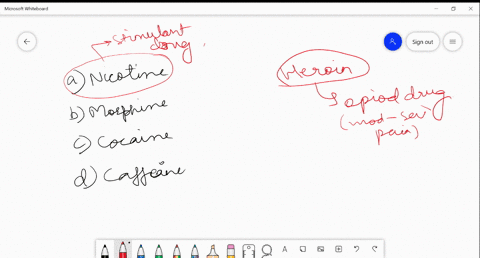 Microsoft Whiteboard
Sign out
stimulant
drug,
a) Nicotine
b) Morphine
c) Cocaine
d) Caffeine
Heroin
opiod drug
(mod-sev
pain)